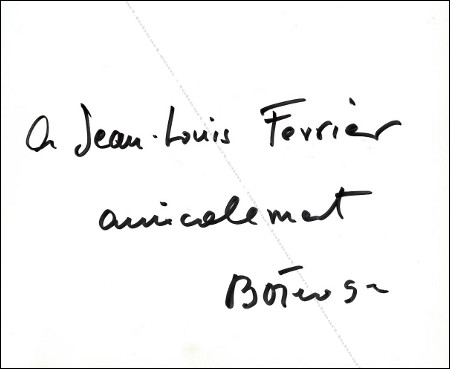 A Jean-Louis Ferrier
amicalement
Botero 92